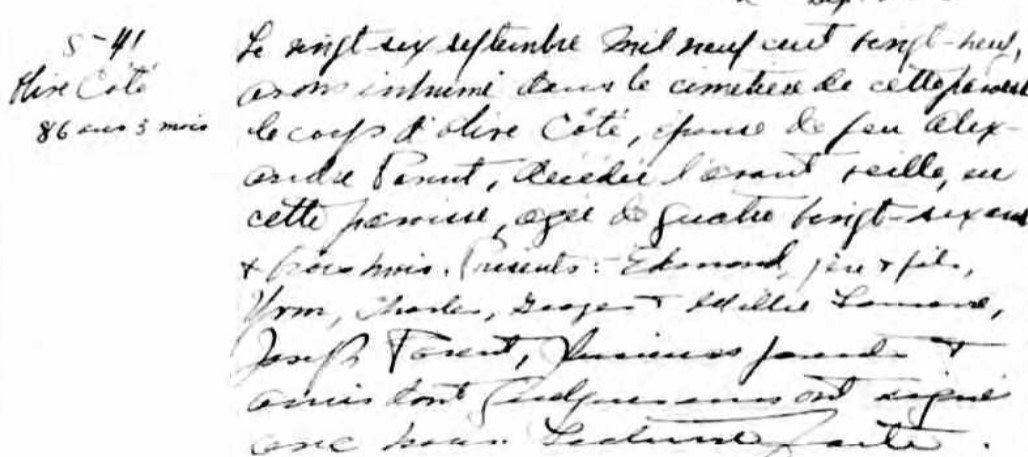 S-41
Olive Côté
86 ans 3 mois
Le vingt-six septembre mil neuf cent vingt-neuf,
avons inhumé dans le cimetière de cette paroisse
le corps d'Olive Côté, épouse de feu Alex-
andre Parent, décédée l'avant veille, en
cette paroisse, agée de quatre vingt-six ans
& trois mois. Présents: Edmond, père & fils,
Yvon, Charles, Georges & Willie
Joseph Parent, plusieurs parents &
amis dont quelques uns ont signé
avec nous. Lecture faite.